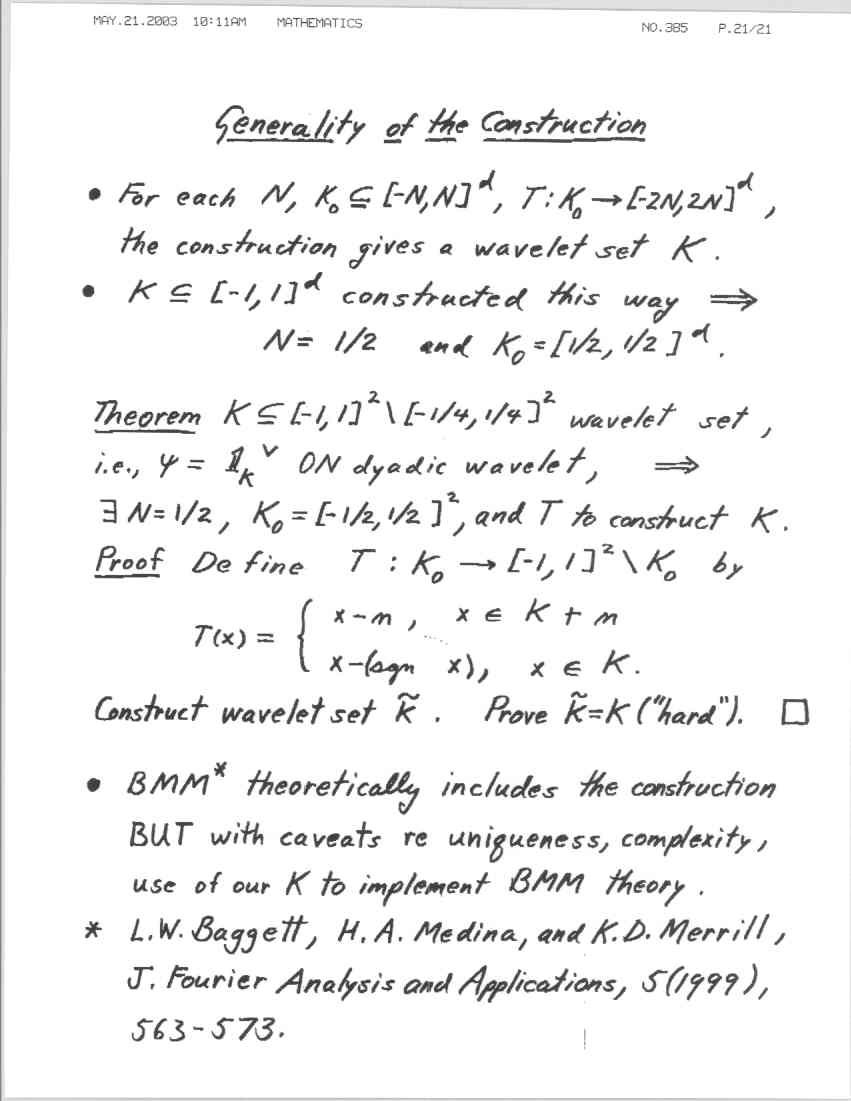 MAY.21.2003 10:11AM MATHEMATICS NO.385 P.21/21
Generality of the Construction
• For each N, K₀ ⊆ [-N,N]ᵈ, T: K₀ → [-2N,2N]ᵈ,
the construction gives a wavelet set K.
• K ⊆ [-1,1]ᵈ constructed this way ⟹
N = 1/2 and K₀ = [1/2, 1/2]ᵈ.
Theorem K ⊆ [-1,1]² \ [-1/4,1/4]² wavelet set,
i.e., ψ = 𝟙_K^∨ ON dyadic wavelet, ⟹
∃ N = 1/2, K₀ = [-1/2,1/2]², and T to construct K.
Proof Define T : K₀ → [-1,1]² \ K₀ by
T(x) = { x-m, x ∈ K + m
x-(sgn x), x ∈ K.
Construct wavelet set K̃. Prove K̃=K ("hard"). □
• BMM* theoretically includes the construction
BUT with caveats re uniqueness, complexity,
use of our K to implement BMM theory.
* L.W. Baggett, H. A. Medina, and K.D. Merrill,
J. Fourier Analysis and Applications, 5(1999),
563-573.